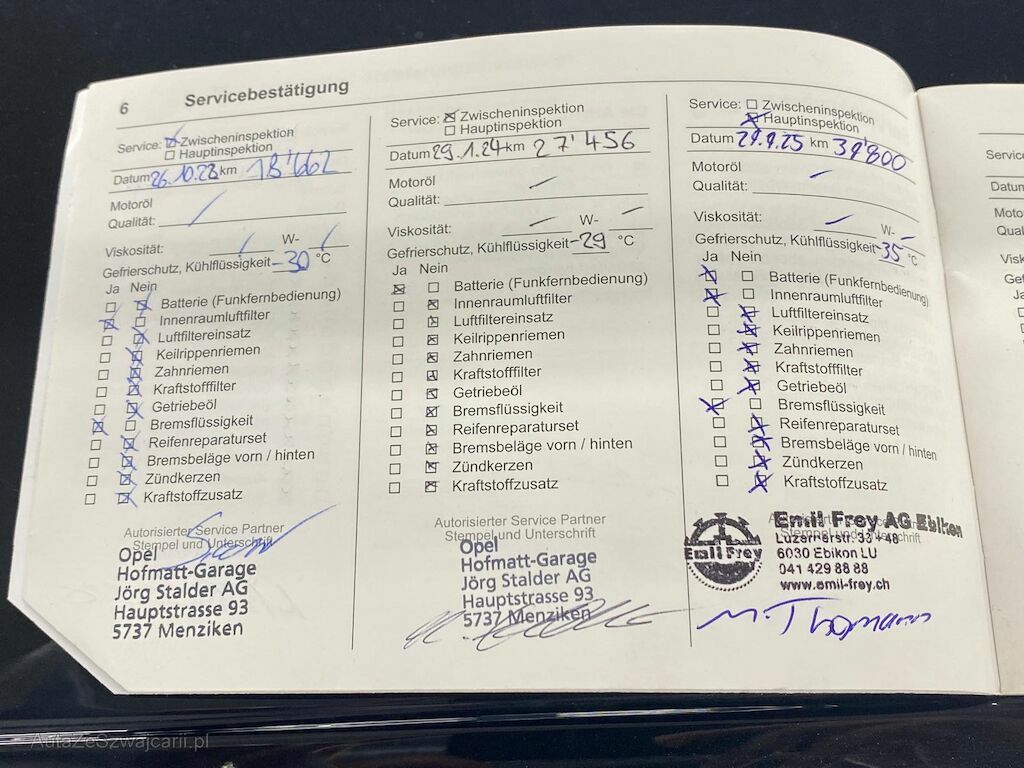 6 Servicebestätigung
Service: Zwischeninspektion
Hauptinspektion
Datum 26.10.23 km 18'662
Motoröl
Qualität:
Viskosität: W-
Gefrierschutz, Kühlflüssigkeit -30 °C
Ja Nein
Batterie (Funkfernbedienung)
Innenraumluftfilter
Luftfiltereinsatz
Keilrippenriemen
Zahnriemen
Kraftstofffilter
Getriebeöl
Bremsflüssigkeit
Reifenreparaturset
Bremsbeläge vorn / hinten
Zündkerzen
Kraftstoffzusatz
Autorisierter Service Partner
Stempel und Unterschrift
Opel
Hofmatt-Garage
Jörg Stalder AG
Hauptstrasse 93
5737 Menziken
Service: Zwischeninspektion
Hauptinspektion
Datum 29.1.24 km 27'456
Motoröl
Qualität:
Viskosität: W-
Gefrierschutz, Kühlflüssigkeit -29 °C
Ja Nein
Batterie (Funkfernbedienung)
Innenraumluftfilter
Luftfiltereinsatz
Keilrippenriemen
Zahnriemen
Kraftstofffilter
Getriebeöl
Bremsflüssigkeit
Reifenreparaturset
Bremsbeläge vorn / hinten
Zündkerzen
Kraftstoffzusatz
Autorisierter Service Partner
Stempel und Unterschrift
Opel
Hofmatt-Garage
Jörg Stalder AG
Hauptstrasse 93
5737 Menziken
Service: Zwischeninspektion
Hauptinspektion
Datum 29.9.25 km 39'800
Motoröl
Qualität:
Viskosität: W-
Gefrierschutz, Kühlflüssigkeit -35 °C
Ja Nein
Batterie (Funkfernbedienung)
Innenraumluftfilter
Luftfiltereinsatz
Keilrippenriemen
Zahnriemen
Kraftstofffilter
Getriebeöl
Bremsflüssigkeit
Reifenreparaturset
Bremsbeläge vorn / hinten
Zündkerzen
Kraftstoffzusatz
Stempel und Unterschrift
Emil Frey
Emil Frey AG Ebikon
Luzernerstr. 33 + 48
6030 Ebikon LU
041 429 88 88
www.emil-frey.ch
Servic
Datum
Moto
Qual
Visk
Ge
AutaZeSzwajcarii.pl